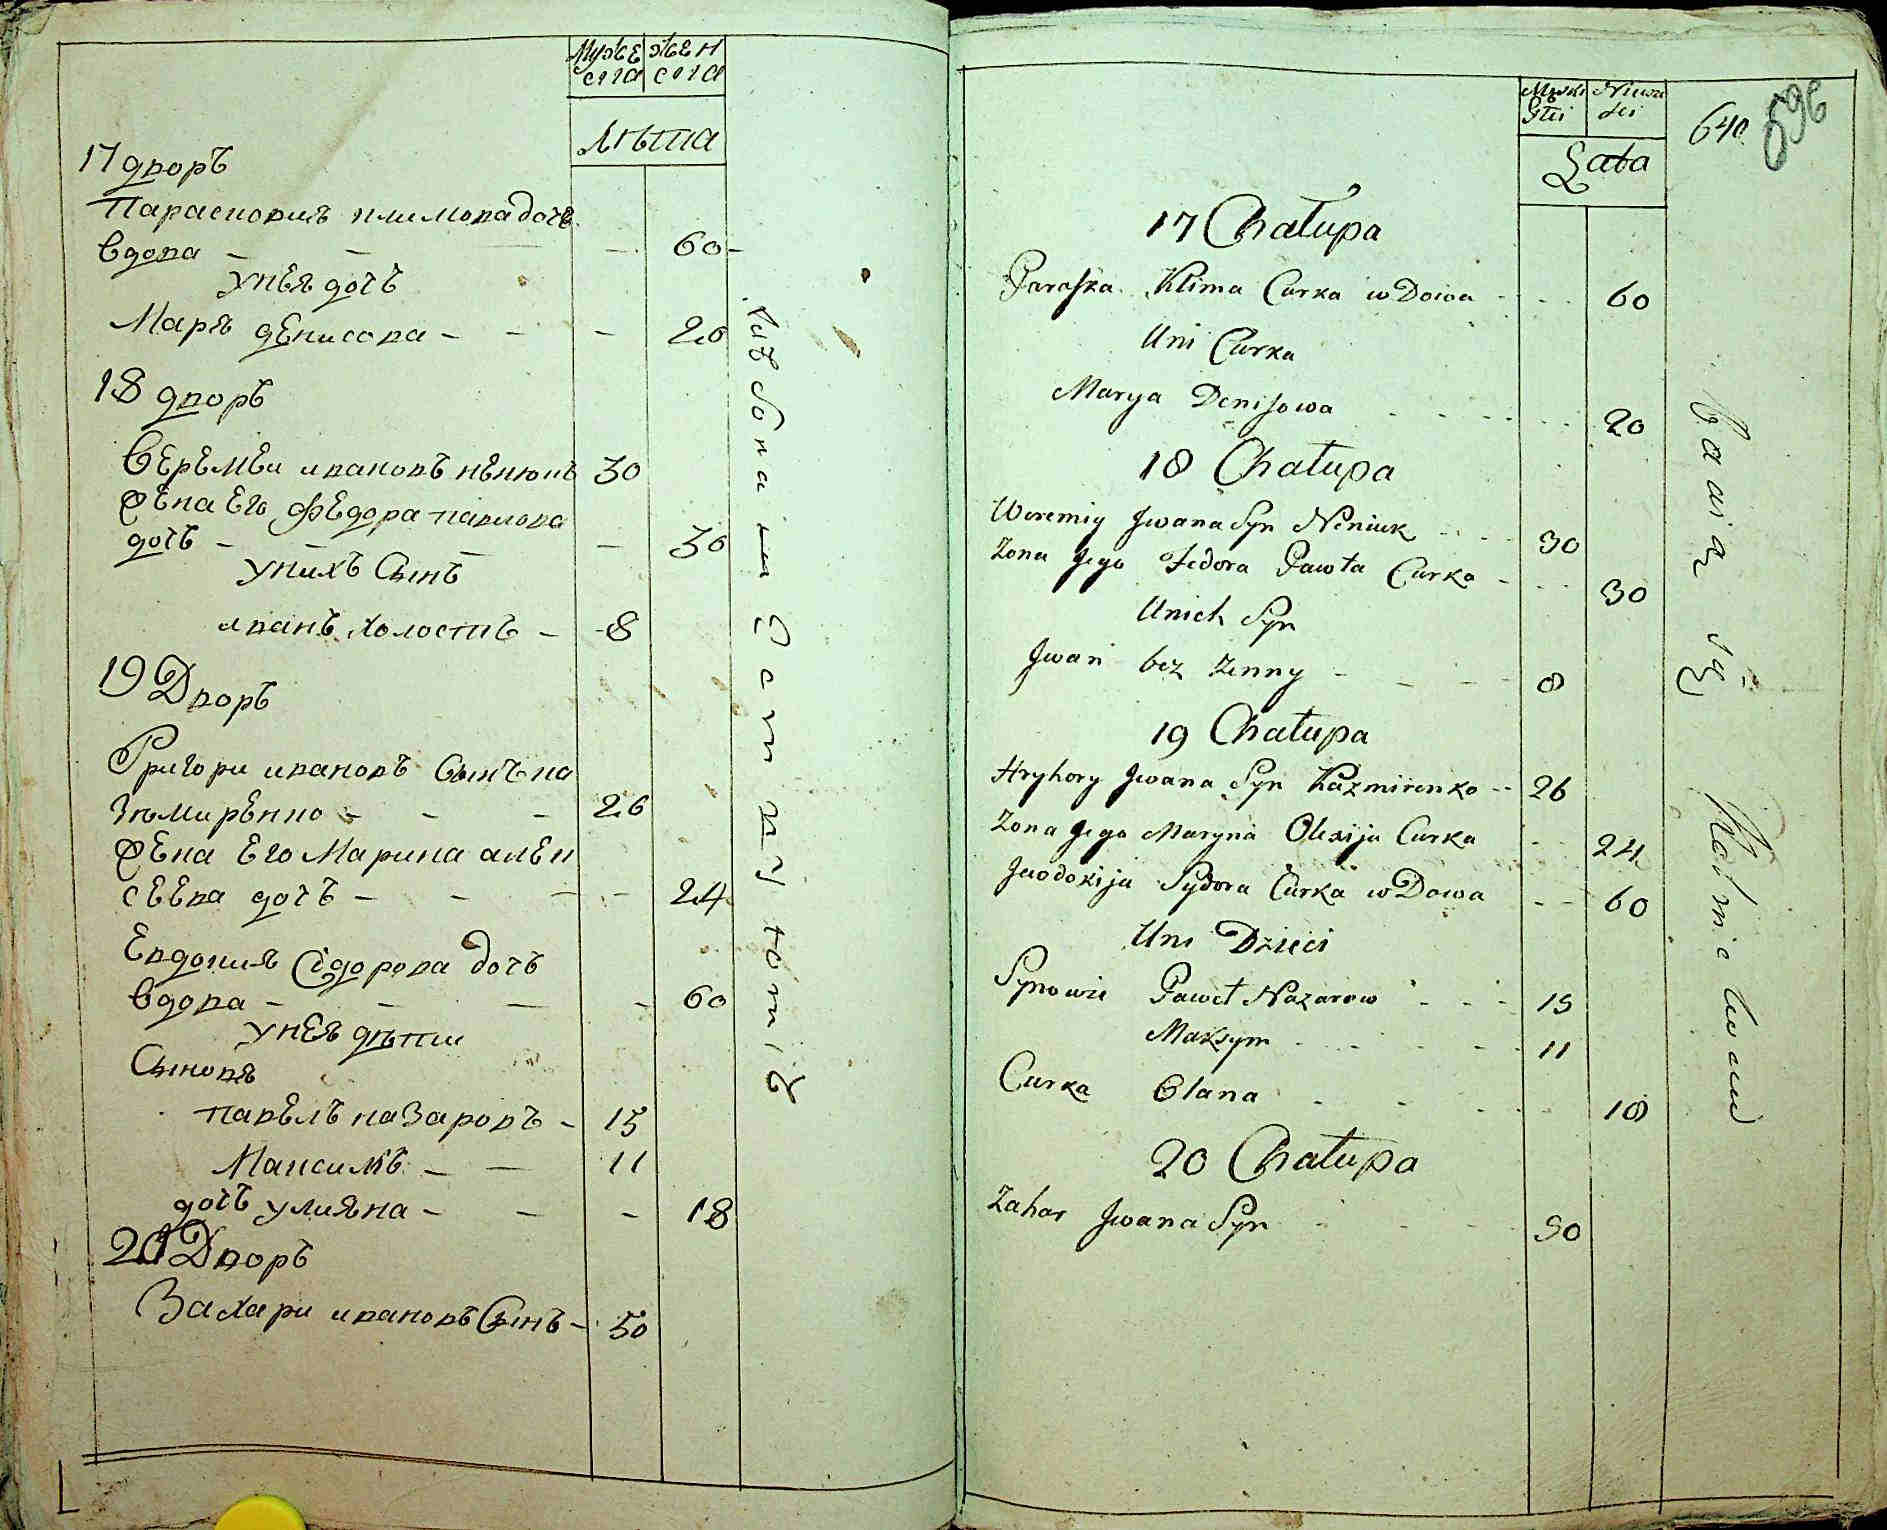 Муже жен
ска ска
Лѣта
17 дворъ
Парасковия климова дочь
вдова - - - 60 -
у нея дочь
Маря денисова - - - 20
18 дворъ
Верѣмѣи ивановъ ненюкъ 30
жена Его Федора павлова
дочь - - - - 30
у нихъ Сынъ
иванъ холостъ - 8
19 Дворъ
Григори ивановъ Сынъ ка
змиренко - - - 26
жена Его Марина алек
сеева дочь - - - - 24
Евдокия Сидорова дочь
вдова - - - - 60
у нея дѣти
Сыновя
павелъ назаровъ - 15
Максимъ - - 11
дочь улияна - - - 18
20 Дворъ
Захари ивановъ Сынъ - 50
Męski Niewi
Płci
Lata
640
596
17 Chałupa
Paraska Klima Curka wDowa 60
Uni Curka
Marya Denisowa 20
18 Chałupa
Weremiy Jwana Syn Neniuk 30
Zona Jego Fedora Pawła Curka - 30
Unich Syn
Jwan bez Zenny - - - 8
19 Chałupa
Hryhory Jwana Syn Kazmirenko - - 26
Zona Jego Maryna Olexija Curka 24
Jwdokija Sydora Curka wDowa - - 60
Uni Dzieci
Synowie Paweł Nazarow - - - 15
Maksym - - - - 11
Curka Olana - - - 18
20 Chałupa
Zahar Jwana Syn - - - 50